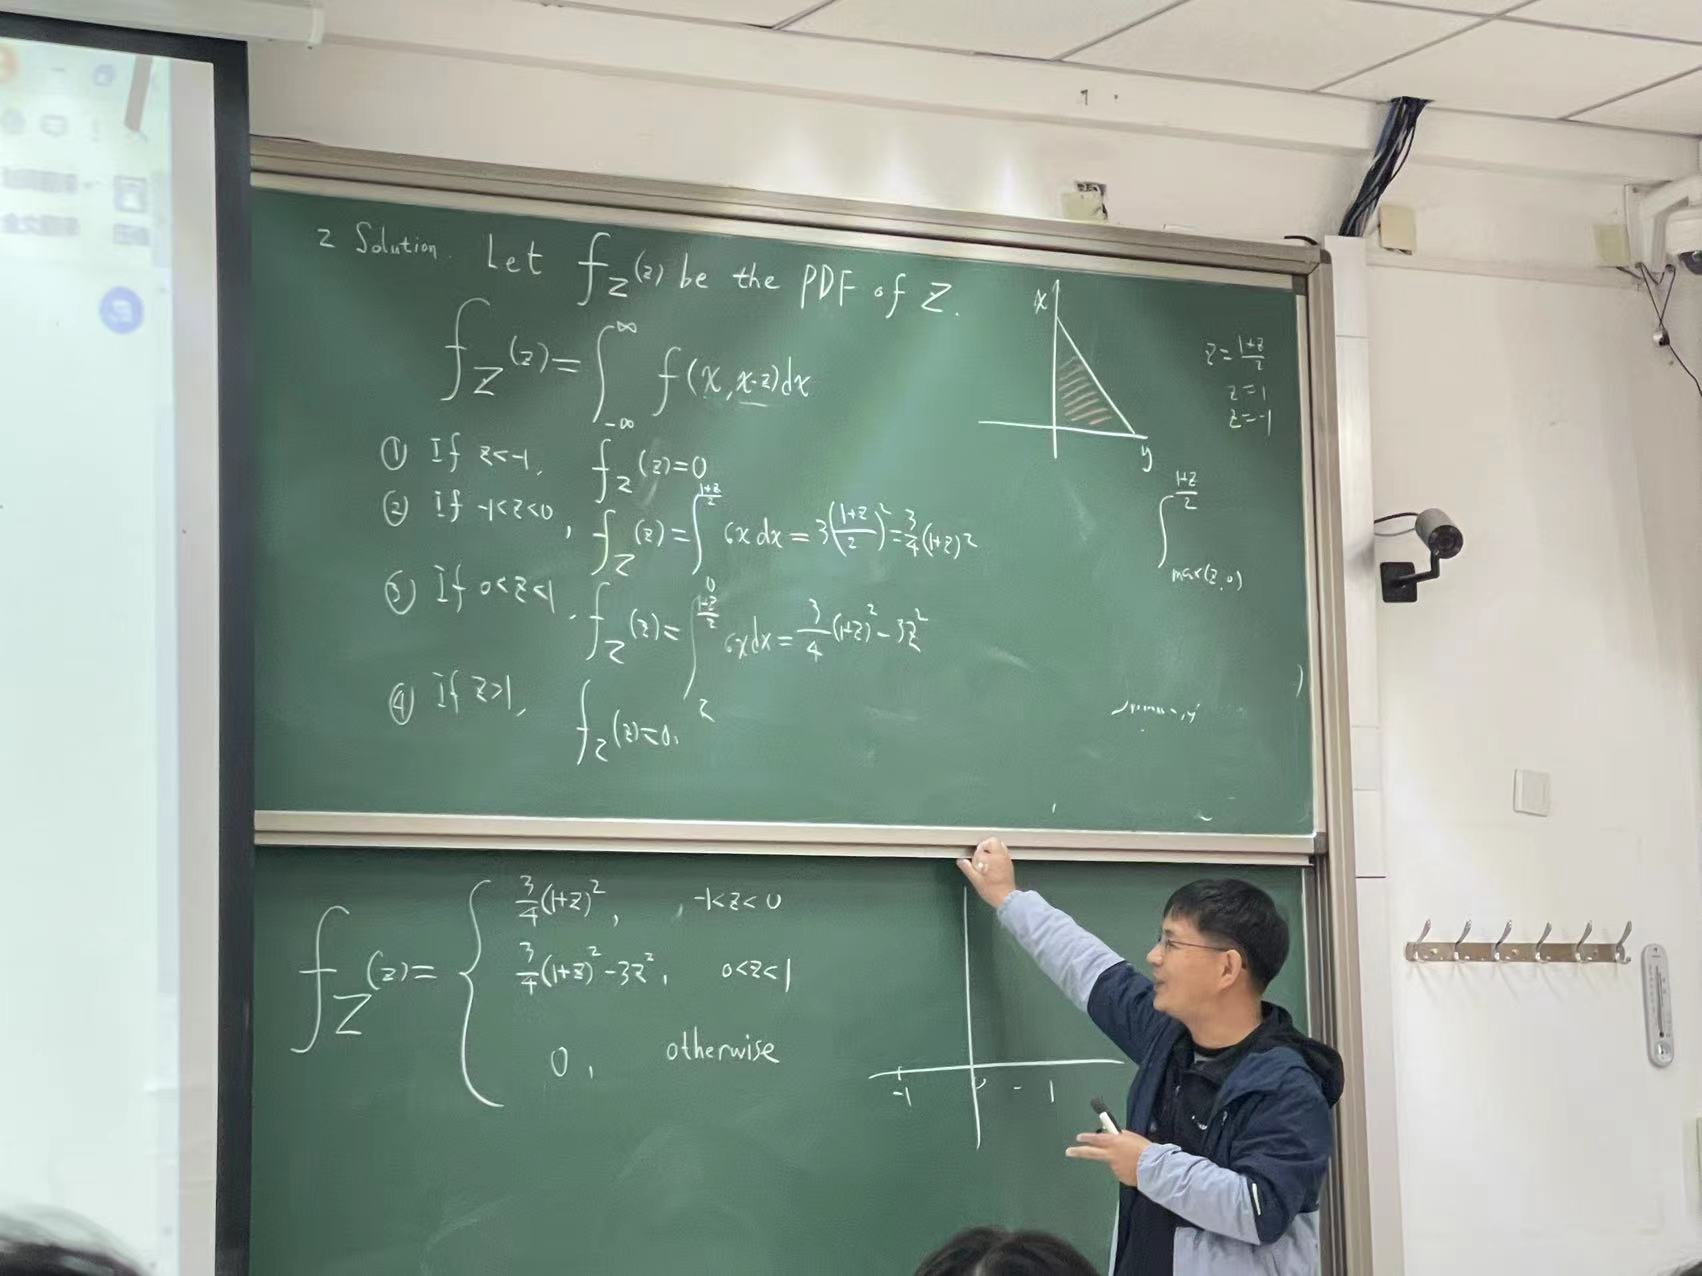 2 Solution. Let f_Z(z) be the PDF of Z.
f_Z(z) = ∫_{-∞}^{∞} f(x, x-z)dx
① If z<-1, f_Z(z)=0
② If -1<z<0, f_Z(z)=∫_0^{\frac{1+z}{2}} 6x dx = 3(\frac{1+z}{2})^2 = \frac{3}{4}(1+z)^2
③ If 0<z<1, f_Z(z)=∫_z^{\frac{1+z}{2}} 6xdx = \frac{3}{4}(1+z)^2 - 3z^2
④ If z>1, f_Z(z)=0.
x
y
z=\frac{1+z}{2}
z=1
z=-1
∫_{max(z,0)}^{\frac{1+z}{2}}
f_Z(z) = { \frac{3}{4}(1+z)^2, , -1<z<0
\frac{3}{4}(1+z)^2 - 3z^2, 0<z<1
0, otherwise
-1 1